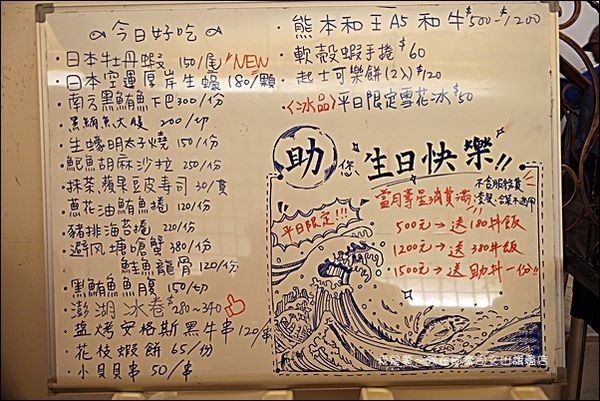 今日好吃
・日本牡丹蝦 150/尾 NEW
・日本空運厚岸生蠔 180/顆
・南方黑鮪魚下巴 300/份
・黑鮪魚大腹 200/切
・生蠔明太子燒 150/份
・魚胡麻沙拉 250/份
・抹茶、蘋果豆皮壽司 30/貫
・蔥花油鮪魚捲 120/份
・豬排海苔捲 220/份
・避风塘嗆蟹 380/份
鮭魚龍骨 120/份
・黑鮪魚魚腹 150/切
・澎湖冰卷 $280~340
・鹽烤安格斯黑牛串 120/串
・花枝蝦餅 65/份
・小貝貝串 50/串
・熊本和王A5和牛 $500-$1200
・軟殼蝦手捲 $60
・起士可樂餅(2入) $120
・〈冰品〉平日限定雪花冰 $50
助您 生日快樂!!
平日限定!!!
當月壽星消費滿
不含服務費
500元→送180丼飯
1200元→送380丼飯
1500元→送助丼一份!!